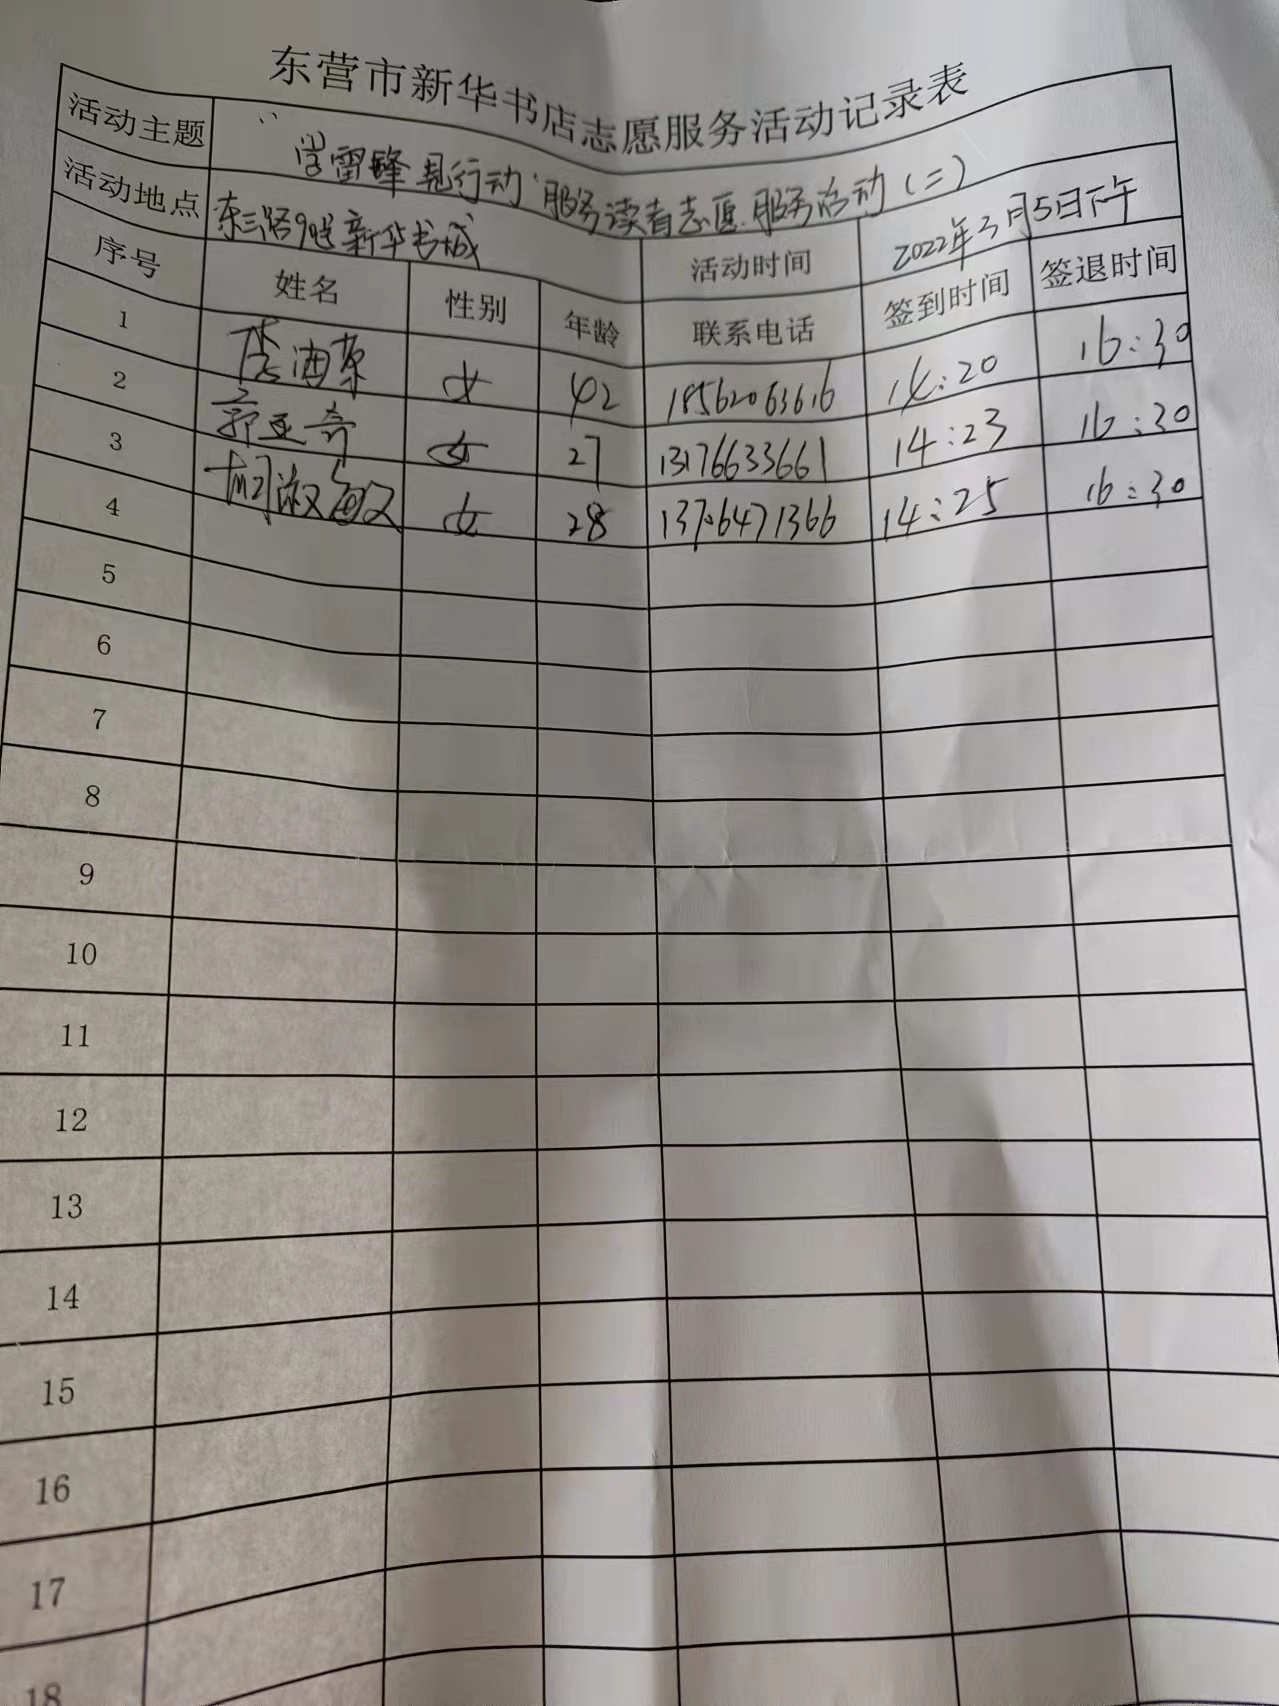 东营市新华书店志愿服务活动记录表
活动主题 "学雷锋见行动"服务读者志愿服务活动(二)
活动地点 东三路9号新华书城 活动时间 2022年3月5日下午
序号 姓名 性别 年龄 联系电话 签到时间 签退时间
1 女 42 18562063616 14:20 16:30
2 郭亚奇 女 27 13176633661 14:23 16:30
3 女 28 13706471366 14:25 16:30
4
5
6
7
8
9
10
11
12
13
14
15
16
17
18